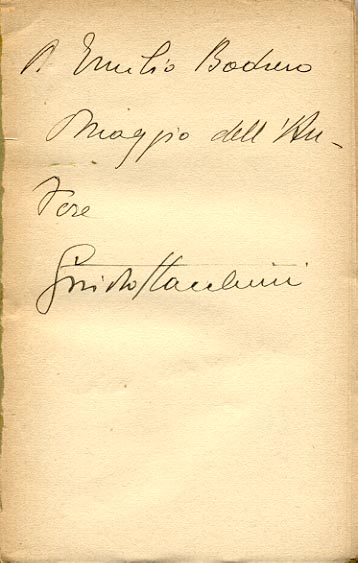 A Emilio Bodrero
Omaggio dell'Au-
tore
Guido Stacchini